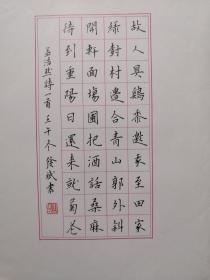 故人具鷄黍邀我至田家
綠樹村邊合青山郭外斜
開軒面場圃把酒話桑麻
待到重陽日還來就菊花
孟浩然詩一首 壬午冬 斌書